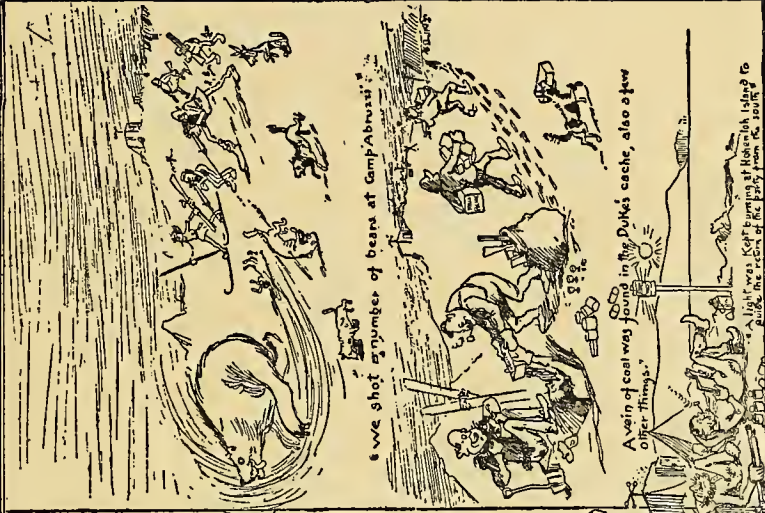 "We shot a number of bears at Camp Abruzzi."
A vein of coal was found in the Duke's cache, also a few
other things."
"A light was Kept burning at Hohenloh Island to
guide the return of the party from the south"